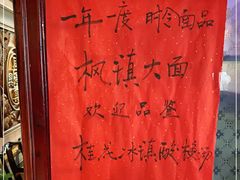 一年一度 时令面品
枫镇大面
欢迎品鉴
桂花冰镇酸梅汤